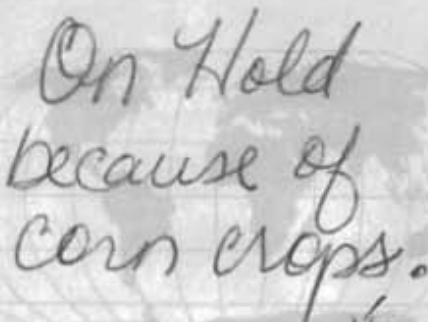 On Hold
because of
corn crops.